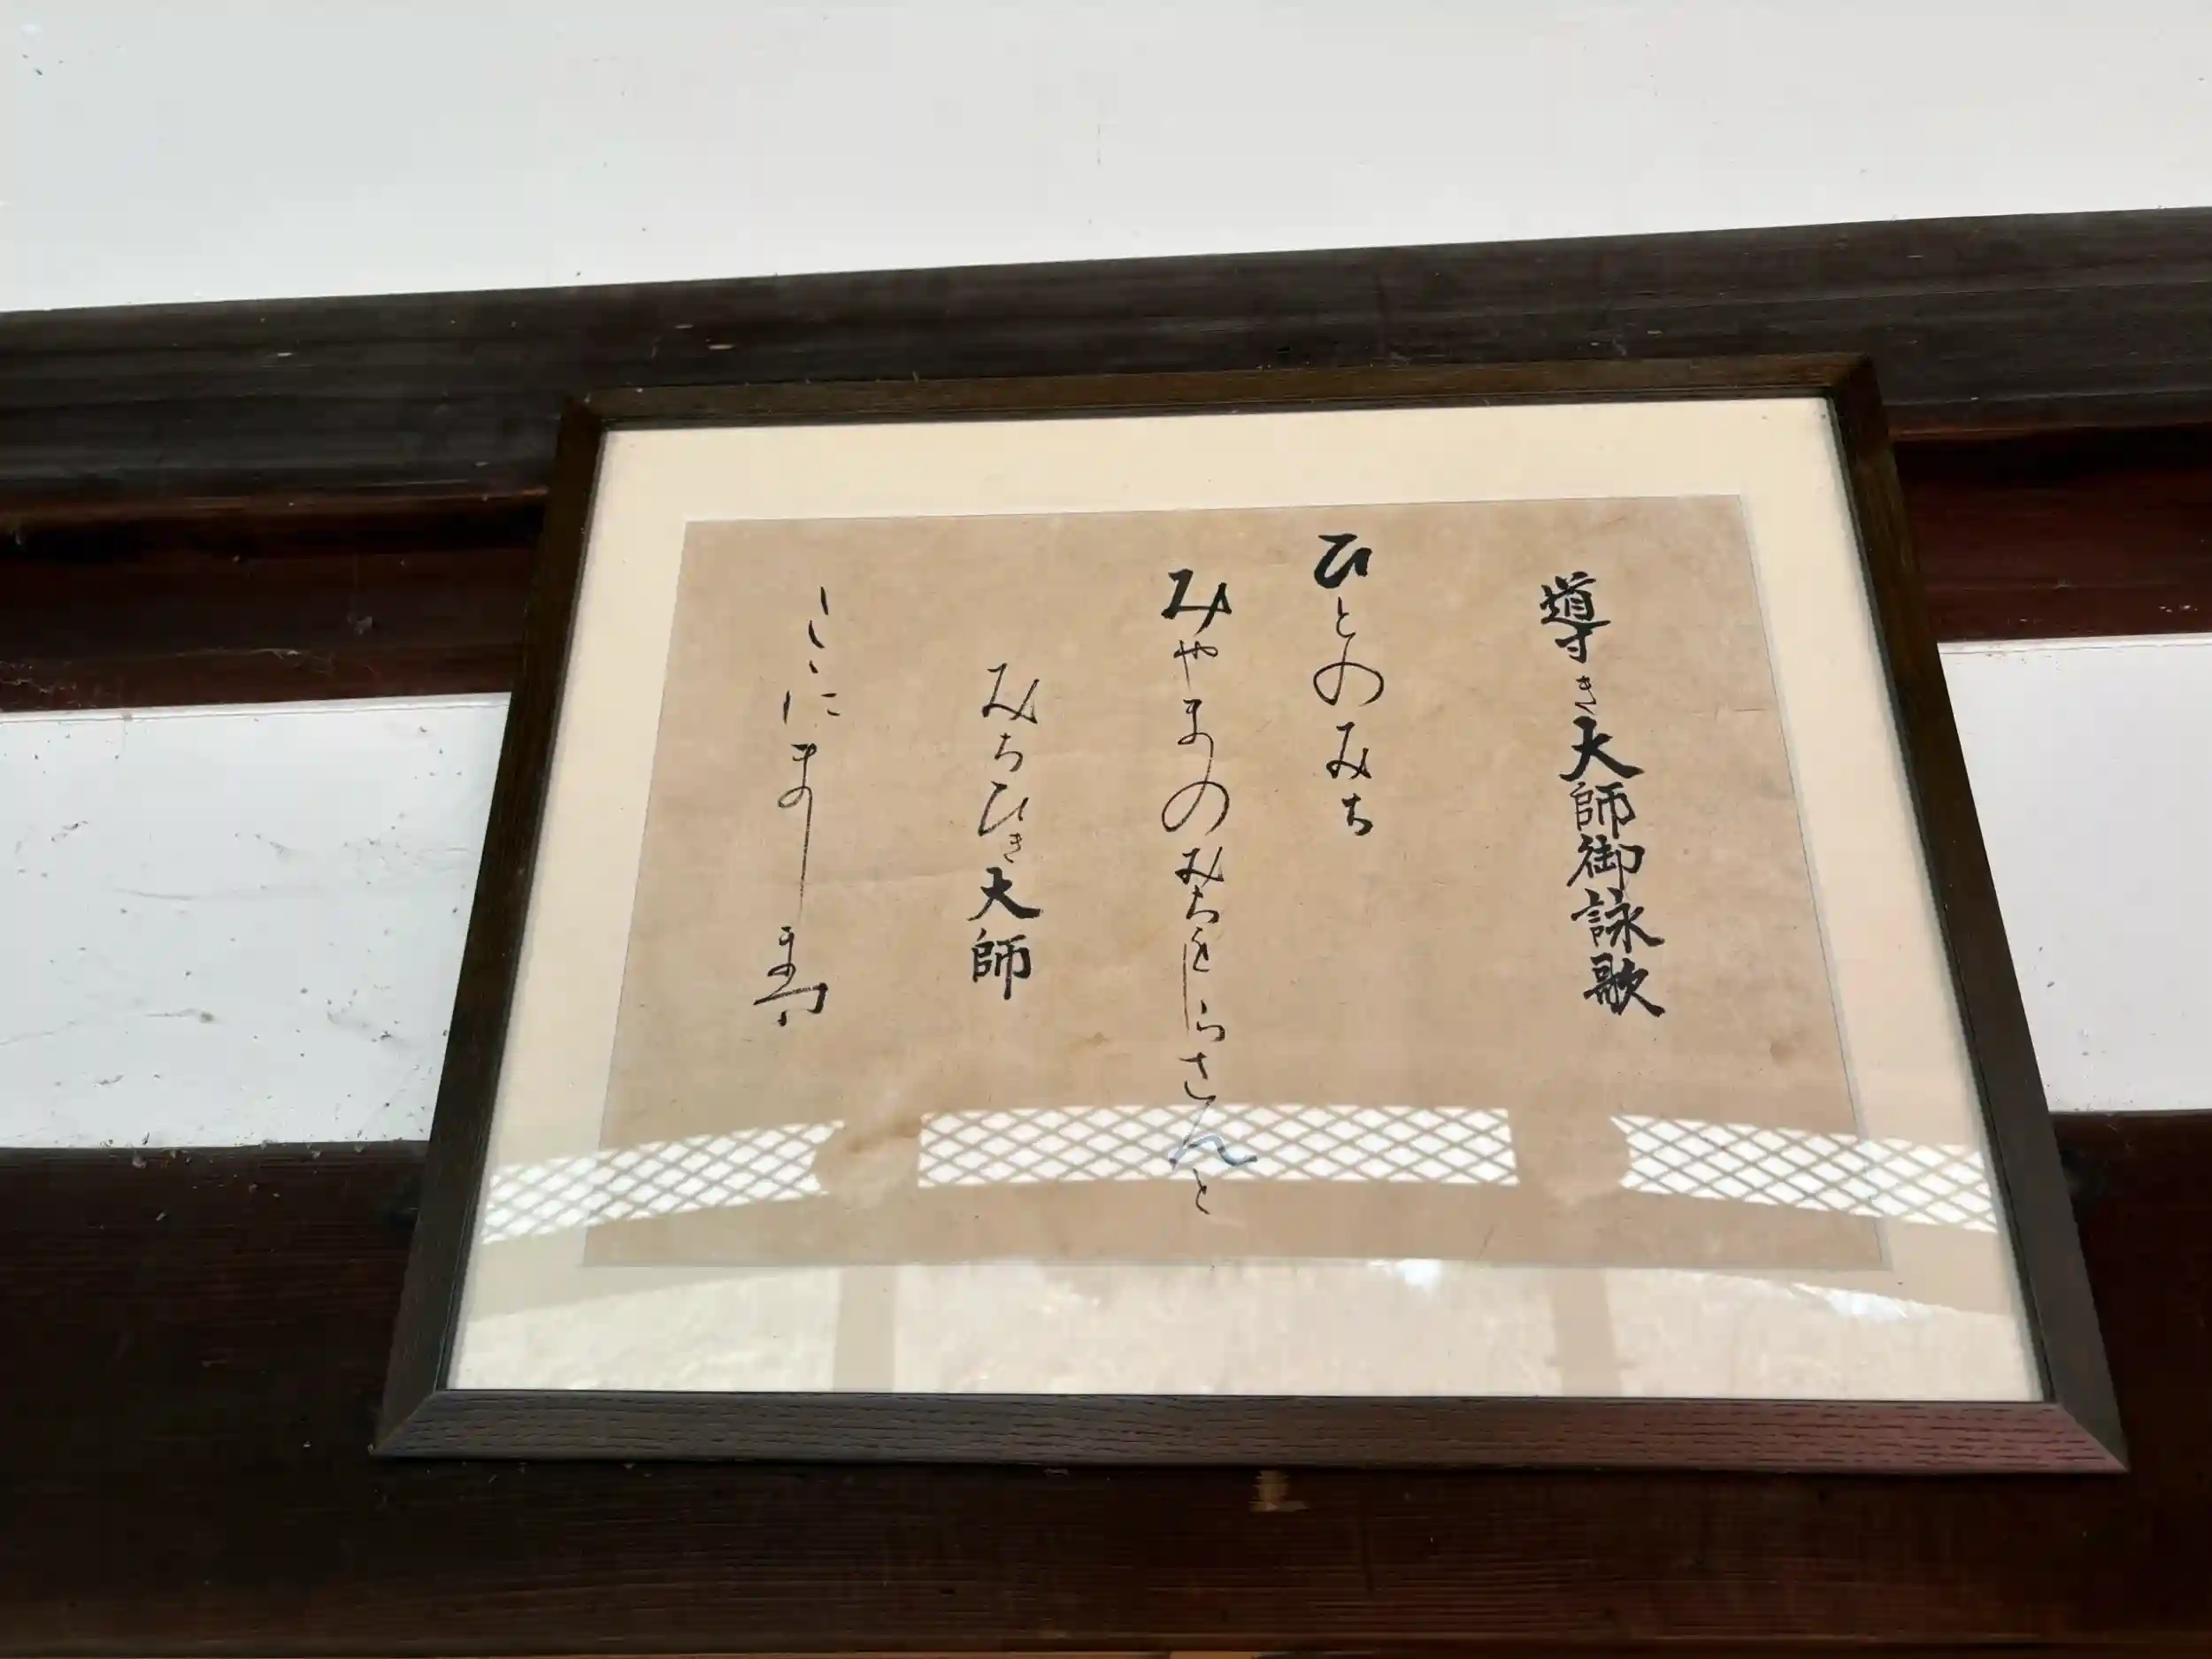 導き大師御詠歌
ひとのみち
みやまのみちをしらさんと
みちひき大師
こゝにまします